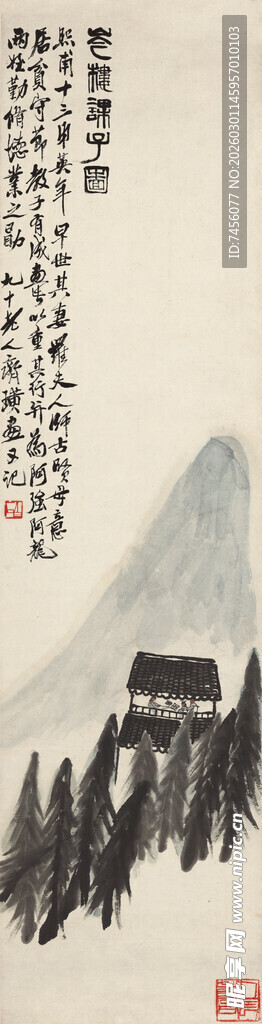 山樓課子圖
熙甫十三弟英年早世其妻羅夫人師古賢母意
居貧守節教子有成畫此以重其行并為阿強阿龍
兩姪勤脩德業之勖 九十老人齊璜畫又記
ID:7456077 NO:20260301145957010103
昵享网 www.nipic.cn